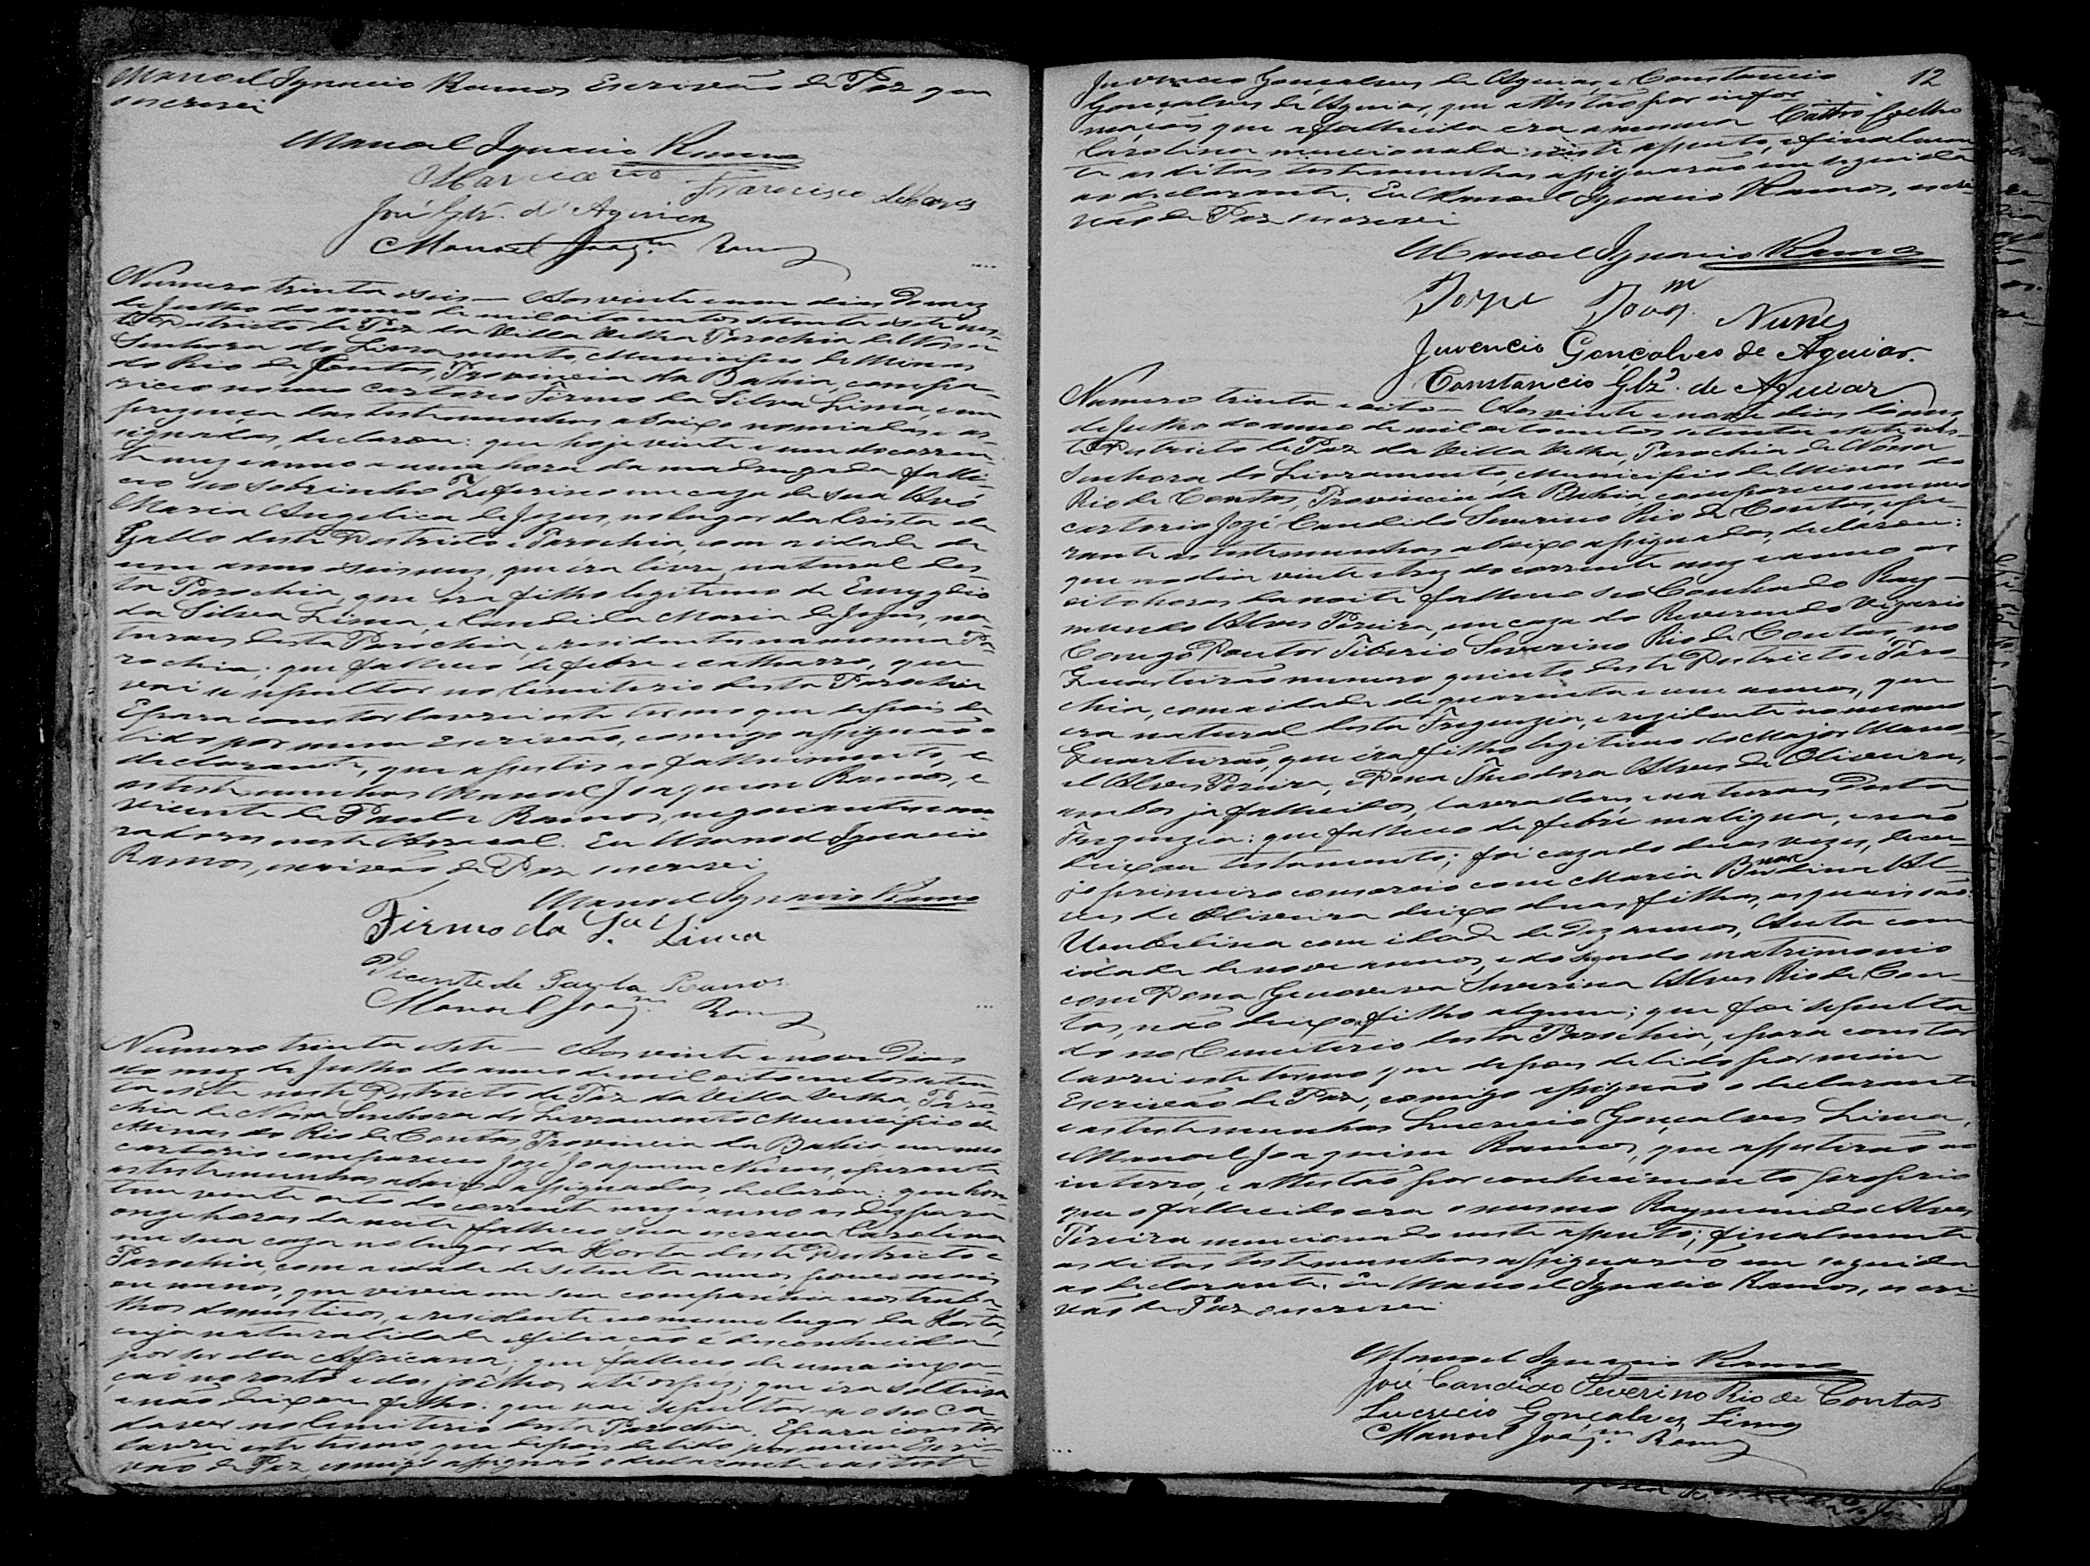 Manoel Ignacio Ramos Escrivão de Paz que
escrevi
Manoel Ignacio Ramos
Francisco
José Glz. d'Aguiar
Manoel Joaqm Ramos
Numero trinta e seis — Aos vinte e um dias do mez
de Julho do anno de mil oito centos setenta e sete nes-
te Destricto de Paz da Villa Velha Parochia de Nossa
Senhora do Livramento, Municipio de Minas
do Rio de Contas, Provincia da Bahia, compa-
receo no meo cartorio Firmo da Silva Lima, e em
presença das testemunhas abaixo nomiadas e as-
signadas, declarou: que hoje vinte e um do corren-
te mez e anno a uma hora da madrugada falle-
ceo seo sobrinho Zeferino em caza de sua Avó
Maria Angelica de Jezus, no lugar da Crista do
Gallo deste Destricto e Parochia, com a idade de
um anno e seis mezes, que éra livre, natural des-
ta Parochia, que éra filho legitimo de Emygdio
da Silva Lima, e Candida Maria de Jezus, na-
turaes desta Parochia, e residentes na mesma Pa-
rochia; que falleceo de febre e catharro, que
vai se sepultar no Cimiterio desta Parochia
E para constar lavrei este termo que depois de
lido por mim Escrivão, comigo assignão o
declarante, que assistio ao fallecimento, e
as testemunhas Manoel Joaquim Ramos, e
Vicente de Paula Ramos, negociantes e mo-
radores neste Arraial. Eu Manoel Ignacio
Ramos, escrivão de Paz escrevi
Manoel Ignacio Ramos
Firmo da Sa Lima
Vicente de Paula Ramos
Manoel Joaqm Ramos
Numero trinta e sete — Aos vinte e nove dias
do mez de Julho do anno de mil oito centos seten-
ta e sete neste Destricto de Paz da Villa Velha, Paro-
chia de Nossa Senhora do Livramento Municipio de
Minas do Rio de Contas, Provincia da Bahia, em meo
cartorio compareceo Joze Joaquim Nunes, e perante
as testemunhas abaixo assignadas, declarou: que hon-
tem vinte oito do corrente mez e anno as dez para
onze horas da noite falleceo sua escrava Carolina
em sua caza no lugar da Horta deste Destricto e
Parochia, com a idade de setenta annos pouco mais
ou menos, que vivia em sua companhia nos traba-
lhos domesticos, e residente no mesmo lugar da Horta,
cuja naturalidade e filiação é desconhecida
por ser ella Africana; que falleceo de uma inxa-
ção no rosto e dos joêlhos até os pés; que éra solteira
e não deixou filho. que vai sepultar-se o seo Ca-
daver no Cimiterio desta Parochia. E para constar
lavrei este termo que depois de lido por mim Escri-
vão de Paz, comigo assignão o declarante e as teste
12
Juvencio Gonçalves de Aguiar, e Constancio
Gonçalves de Aguiar, que attestão por infor-
mação que a fallecida era a mesma
Carolina mencionada neste assento, e finalmen-
te as ditas testemunhas assignarão em seguida
ao declarante. Eu Manoel Ignacio Ramos, escri-
vão de Paz escrevi
Manoel Ignacio Ramos
Joze Joaqm Nunes
Juvencio Gonçalves de Aguiar.
Constancio Glz. de Aguiar
Numero trinta e oito — Aos vinte e nove dias do mez
de Julho do anno de mil oito centos setenta e sete nes-
te Destricto de Paz da Villa Velha, Parochia de Nossa
Senhora do Livramento, Municipio de Minas do
Rio de Contas, Provincia da Bahia, compareceo em meo
cartorio Joze Candido Severino Rio de Contas, e pe-
rante as testemunhas abaixo assignadas, declarou:
que no dia vinte e trez do corrente mez e anno as
oito horas da noite falleceo seo Cunhado Ray-
mundo Alves Pereira, em caza do Reverendo Vigario
Conego Doutor Tiberio Severino Rio de Contas, no
Quarteirão numero quinto deste Destricto e Paro-
chia, com a idade de quarenta e um annos, que
era natural desta Freguezia, e rezidente no mesmo
Quarteirão, que éra filho legitimo do Major Mano-
el Alves Pereira, e Dona Theodora Alves de Oliveira,
ambos já fallecidos, lavradores, e naturaes desta
Freguezia: que falleceo de febre maligna, e não
deixou testamento; foi cazado duas vezes, de cu-
jo primeiro consorcio com Maria Al-
ves de Oliveira deixa duas filhas, as quais são
Umbelina com idade de dez annos, Auta com
idade de nove annos, e do segundo matrimonio
com Dona Genoveva Severina Alves Rio de Con-
tas, não deixou filho algum; que foi sepulta-
do no Cimiterio desta Parochia, e para constar
lavrei este termo que depois de lido por mim
Escrivão de Paz, comigo assignão o declarante
e as testemunhas Lucrecio Gonçalves Lima,
e Manoel Joaquim Ramos, que assistirão ao
interro, e attestão por conhecimento proprio
que o fallecido era o mesmo Raymundo Alves
Pereira mencionado neste assento; finalmente
as ditas testemunhas assignarão em seguida
ao declarante. Eu Manoel Ignacio Ramos, escri-
vão de Paz escrevi
Manoel Ignacio Ramos
José Candido Severino Rio de Contas
Lucrecio Gonçalves Lima
Manoel Joaqm Ramos